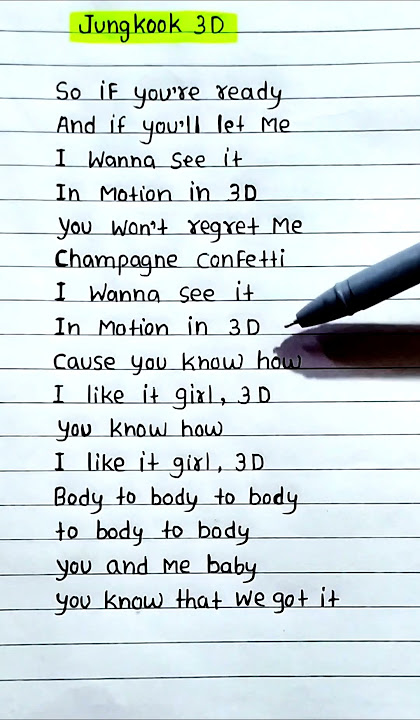 Jungkook 3D
So if you're ready
And if you'll let Me
I Wanna see it
In Motion in 3D
you won't regret Me
Champagne confetti
I Wanna see it
In Motion in 3D
cause you know how
I like it girl, 3D
you know how
I like it girl, 3D
Body to body to body
to body to body
you and Me baby
you know that we got it